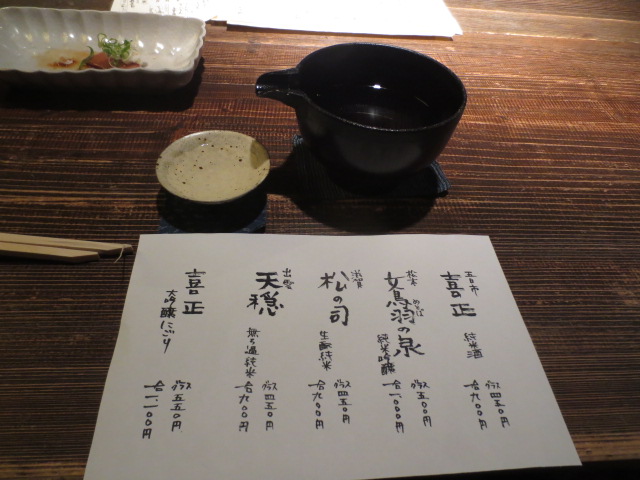 五日市
喜正
純米酒
グラス四五〇円
一合九〇〇円
松本
女鳥羽の泉
めとば
純米吟醸
グラス五五〇円
一合一、〇〇〇円
滋賀
松の司
生酛純米
グラス四五〇円
一合九〇〇円
出雲
天穏
無ろ過純米
グラス四五〇円
一合九〇〇円
喜正
大吟醸にごり
グラス五五〇円
一合一、一〇〇円